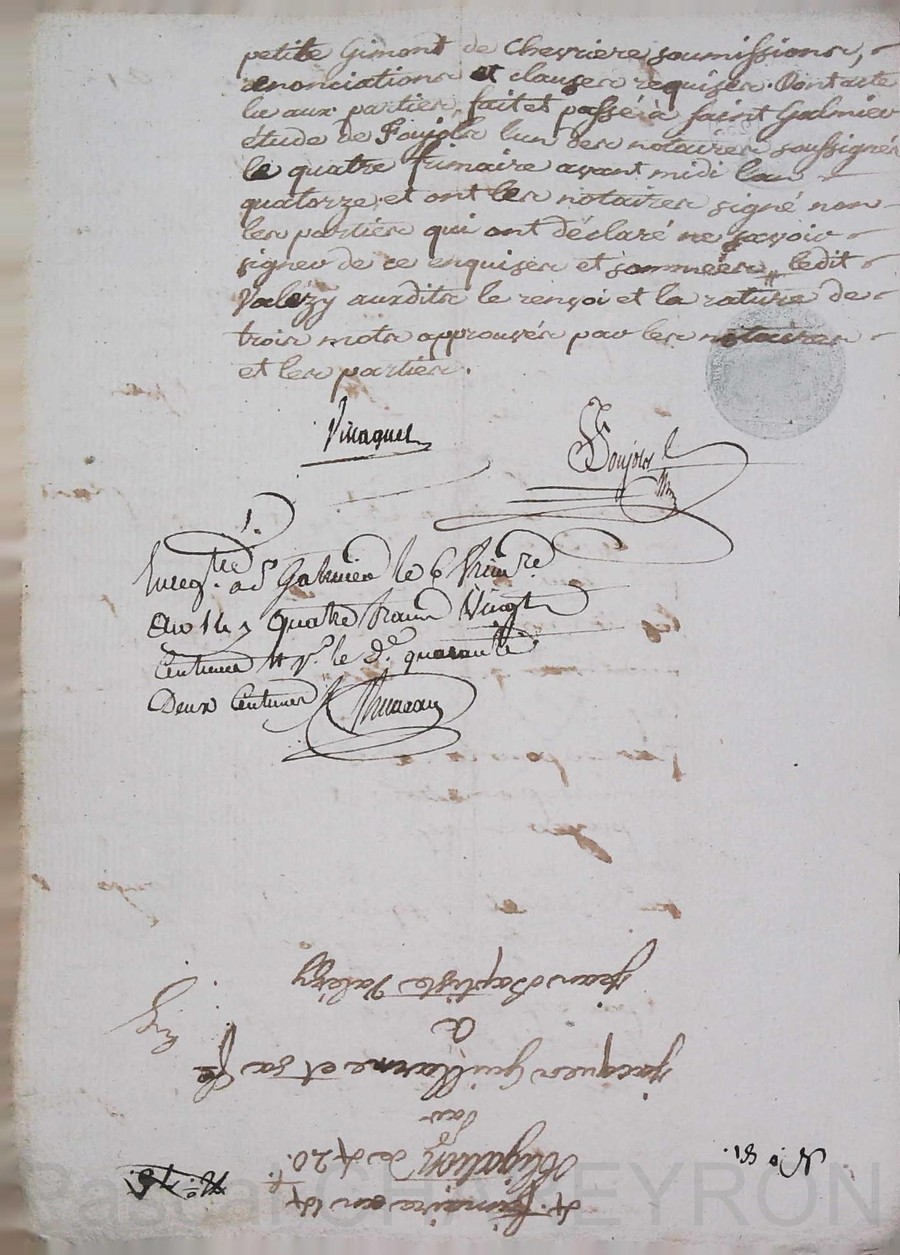 petite Gimont de Chevriere soumissions,
renonciations et clauses requises. Dont acte
lu aux parties, fait et passé à Saint Galmier
étude de Foujols l'un des notaires soussignés
le quatre frimaire avant midi l'an
quatorze et ont les notaires signé non
les parties qui ont déclaré ne savoir
signer de ce enquises et sommées, ledit
Valézy auxdits le renvoi et la rature de
trois mots approuvés par les notaires
et les parties.
Foujols
Enreg.tré à St Galmier le 6 frim.re
an 14 quatre francs vingt
centimes le d.e quarante
Deux centimes
4 frimaire an 14
Obligation de 420 f.
par
Jacques Guillarme et sa fe
à
Jean Baptiste Valézy
No 81.
Pascal CHALEYRON